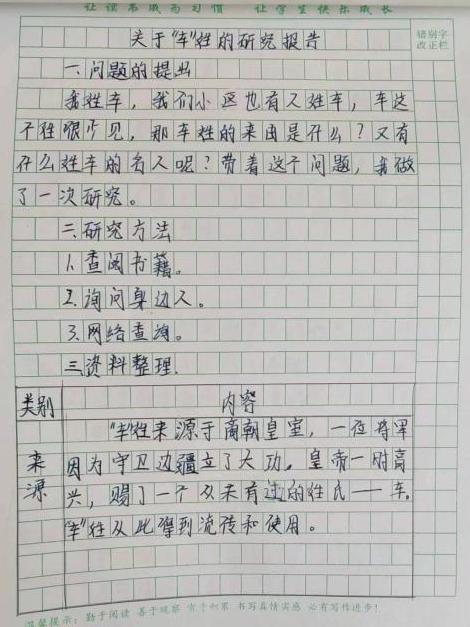 让读书成为习惯 让学生快乐成长
错别字
改正栏
关于“车”姓的研究报告
一、问题的提出
我姓车，我们小区也有人姓车，车这
个姓很少见，那车姓的来由是什么？又有
什么姓车的名人呢？带着这个问题，我做
了一次研究。
二、研究方法
1.查阅书籍。
2.询问身边人。
3.网络查询。
三、资料整理.
类别 内容
来源
“车”姓来源于商朝皇室，一位将军
因为守卫边疆立了大功。皇帝一时高
兴，赐了一个从未有过的姓氏——车。
“车”姓从此得到流传和使用。
温馨提示：勤于阅读 善于观察 书写真情实感 必有写作进步！